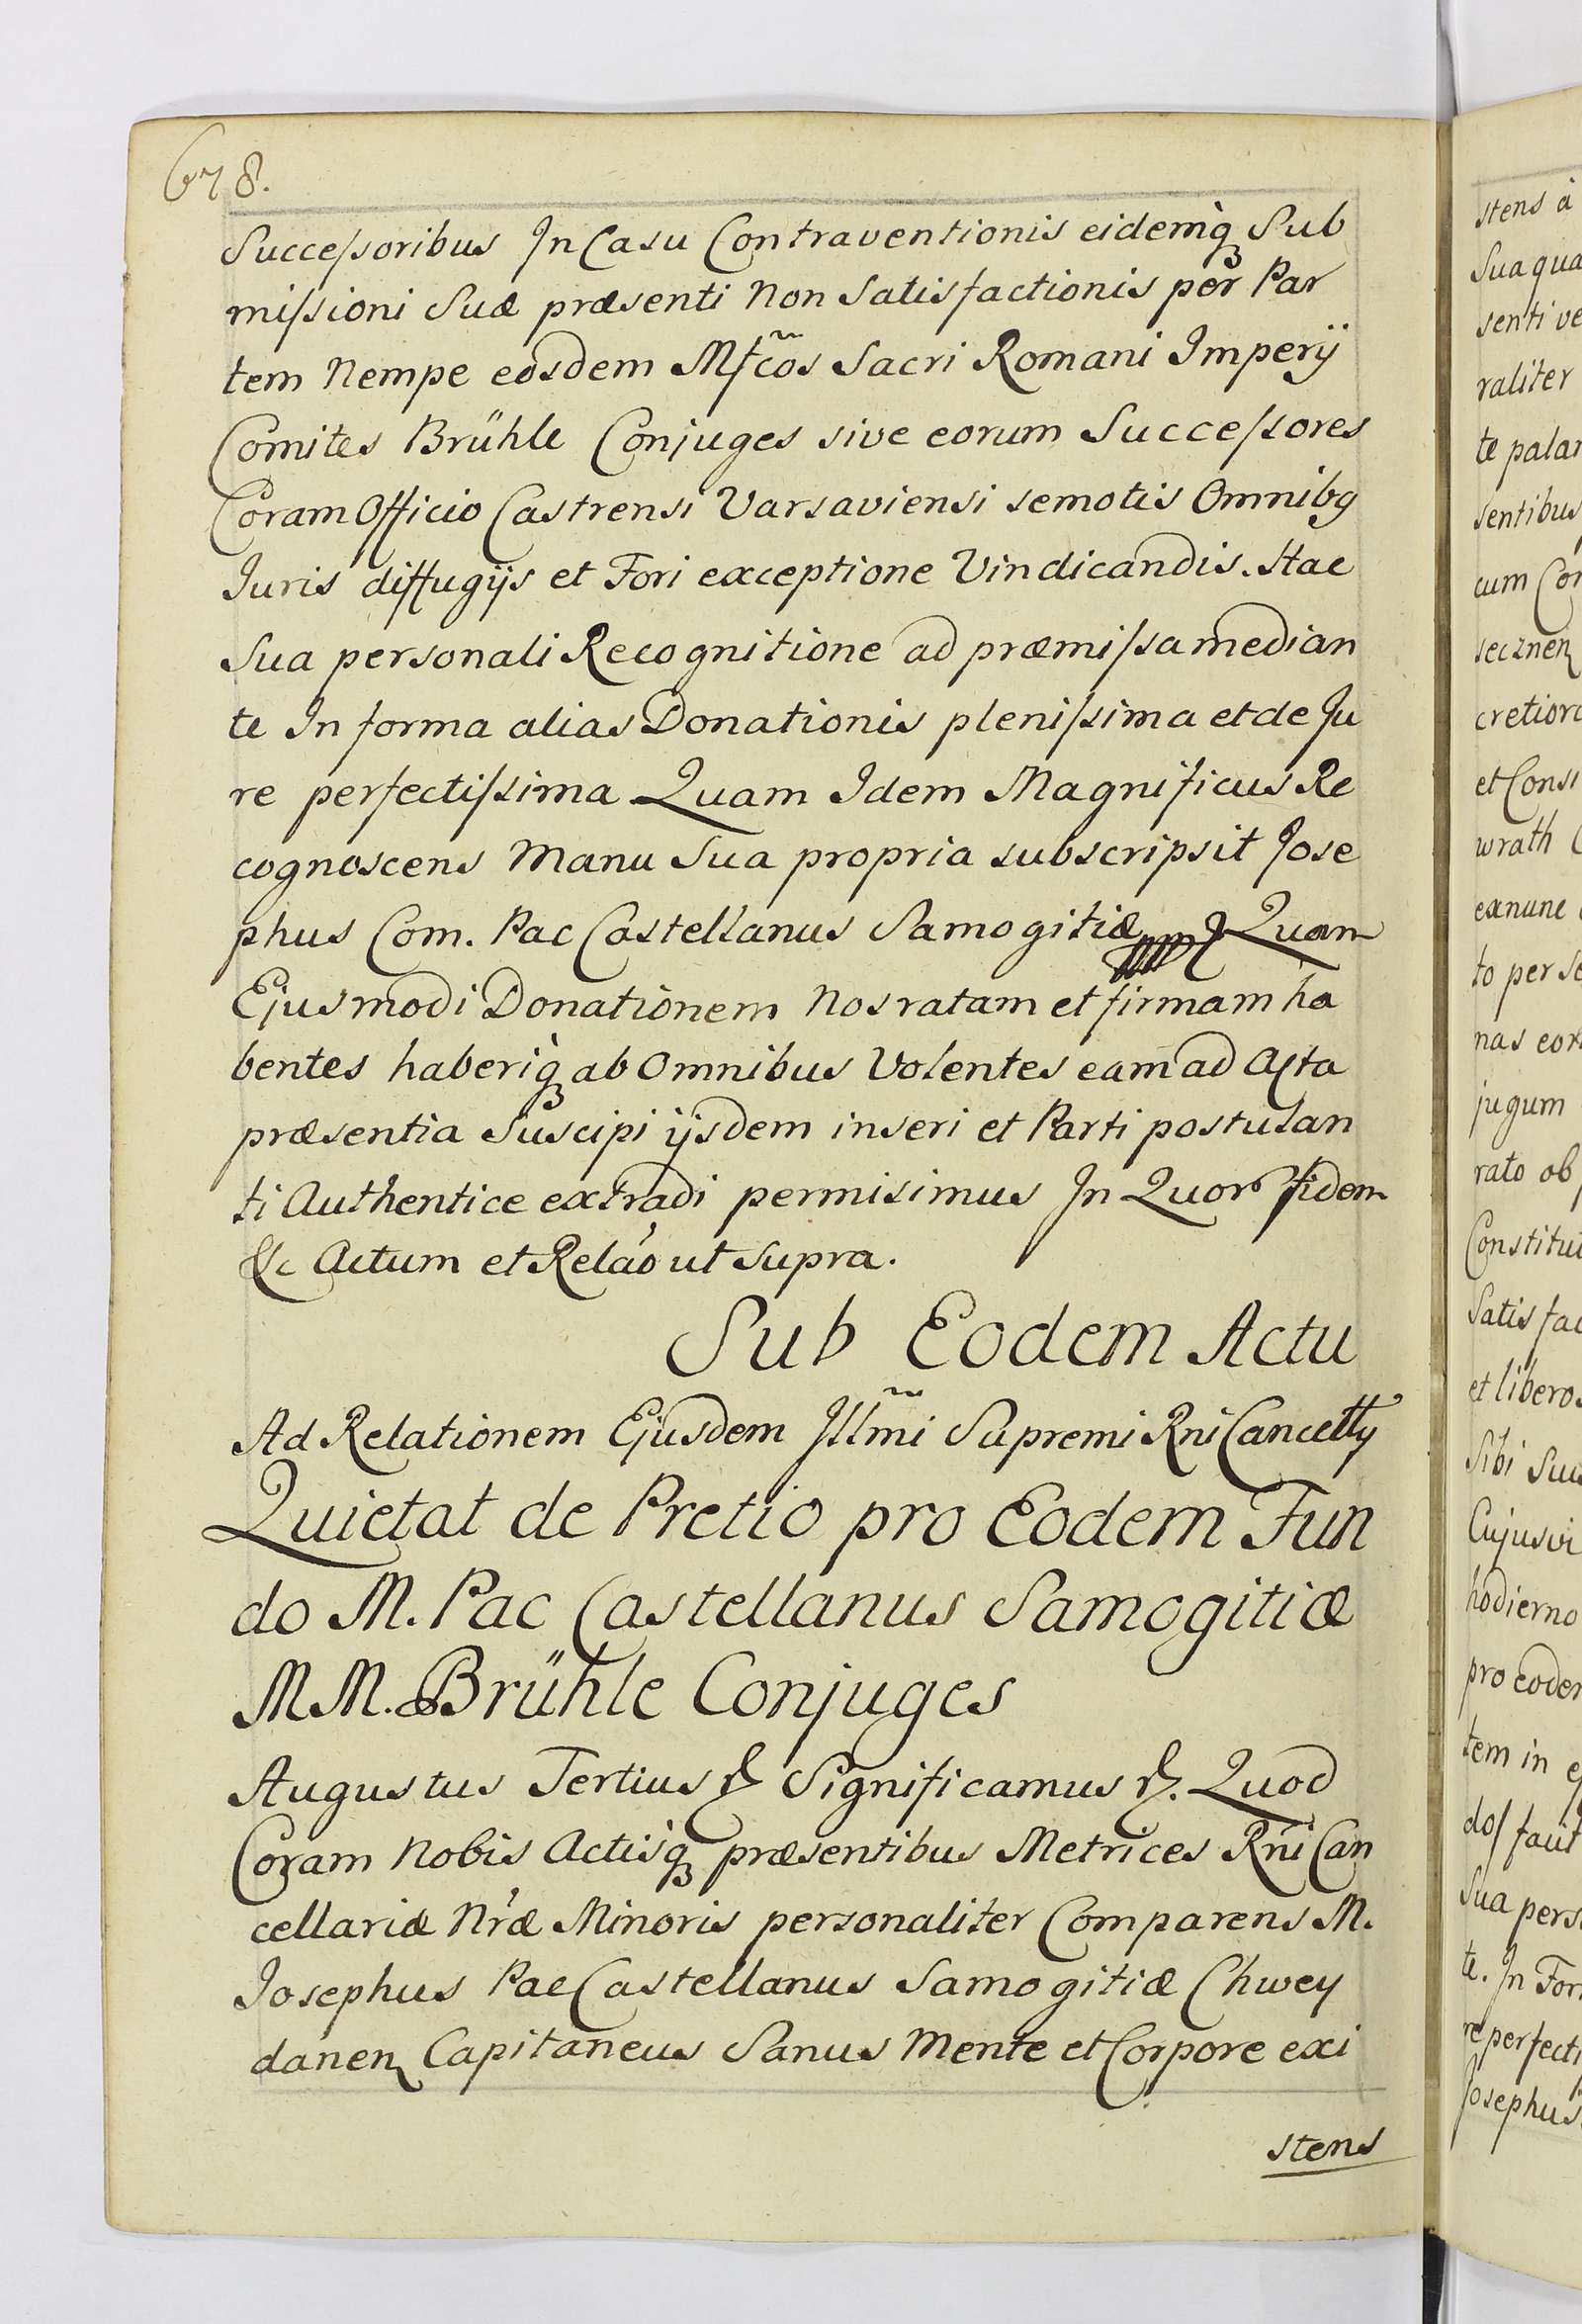 678.
Successoribus In Casu Contraventionis eidemq Sub
missioni Suæ præsenti Non Satisfactionis per Par
tem Nempe eosdem Mfcos Sacri Romani Imperij
Comites Brühle Conjuges sive eorum Successores
Coram Officio Castrensi Varsaviensi semotis Omnibg
Iuris diffugijs et Fori exceptione Vindicandis. Hac
Sua personali Recognitione ad præmissa median
te In forma alias Donationis plenissima et de Ju
re perfectissima Quam Idem Magnificus Re
cognoscens Manu Sua propria subscripsit Jose
phus Com. Pac Castellanus Samogitiæ Quam
Ejusmodi Donationem Nos ratam et firmam ha
bentes haberiq ab Omnibus Volentes eam ad Acta
præsentia Suscipi ijsdem inseri et Parti postulan
ti Authentice extradi permisimus In Quor Fidem
&c Actum et Relao ut supra.
Sub Eodem Actu
Ad Relationem Ejusdem Illmi Supremi Rni Cancellrij
Quietat de Pretio pro Eodem Fun
do M. Pac Castellanus Samogitiæ
MM. Brühle Conjuges
Augustus Tertius &. Significamus &. Quod
Coram Nobis Actisq præsentibus Metrices Rni Can
cellariæ Nræ Minoris personaliter Comparens M.
Josephus Pac Castellanus Samogitiæ Chwey
danen Capitaneus Sanus Mente et Corpore exi
stens
stens à
Sua qua
senti ve
raliter
te palar
sentibus
cum Con
secznen
cretiora
et Consi
wrath
exnunc
to per se
nas eor
jugum
rato ob
Constitui
Satisfac
et liberos
Sibi Suis
Cujusvi
hodierno
pro eoder
tem in
dos fauit
Sua pers
te. In For
re perfecti
Josephus